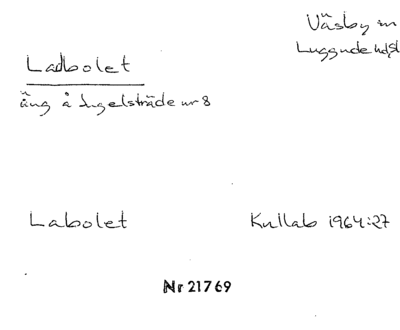 Väsby sn
Luggude hd
Ladbolet
äng å Ingelsträde nr 8
Labolet
Kullab 1964:27
Nr 21769